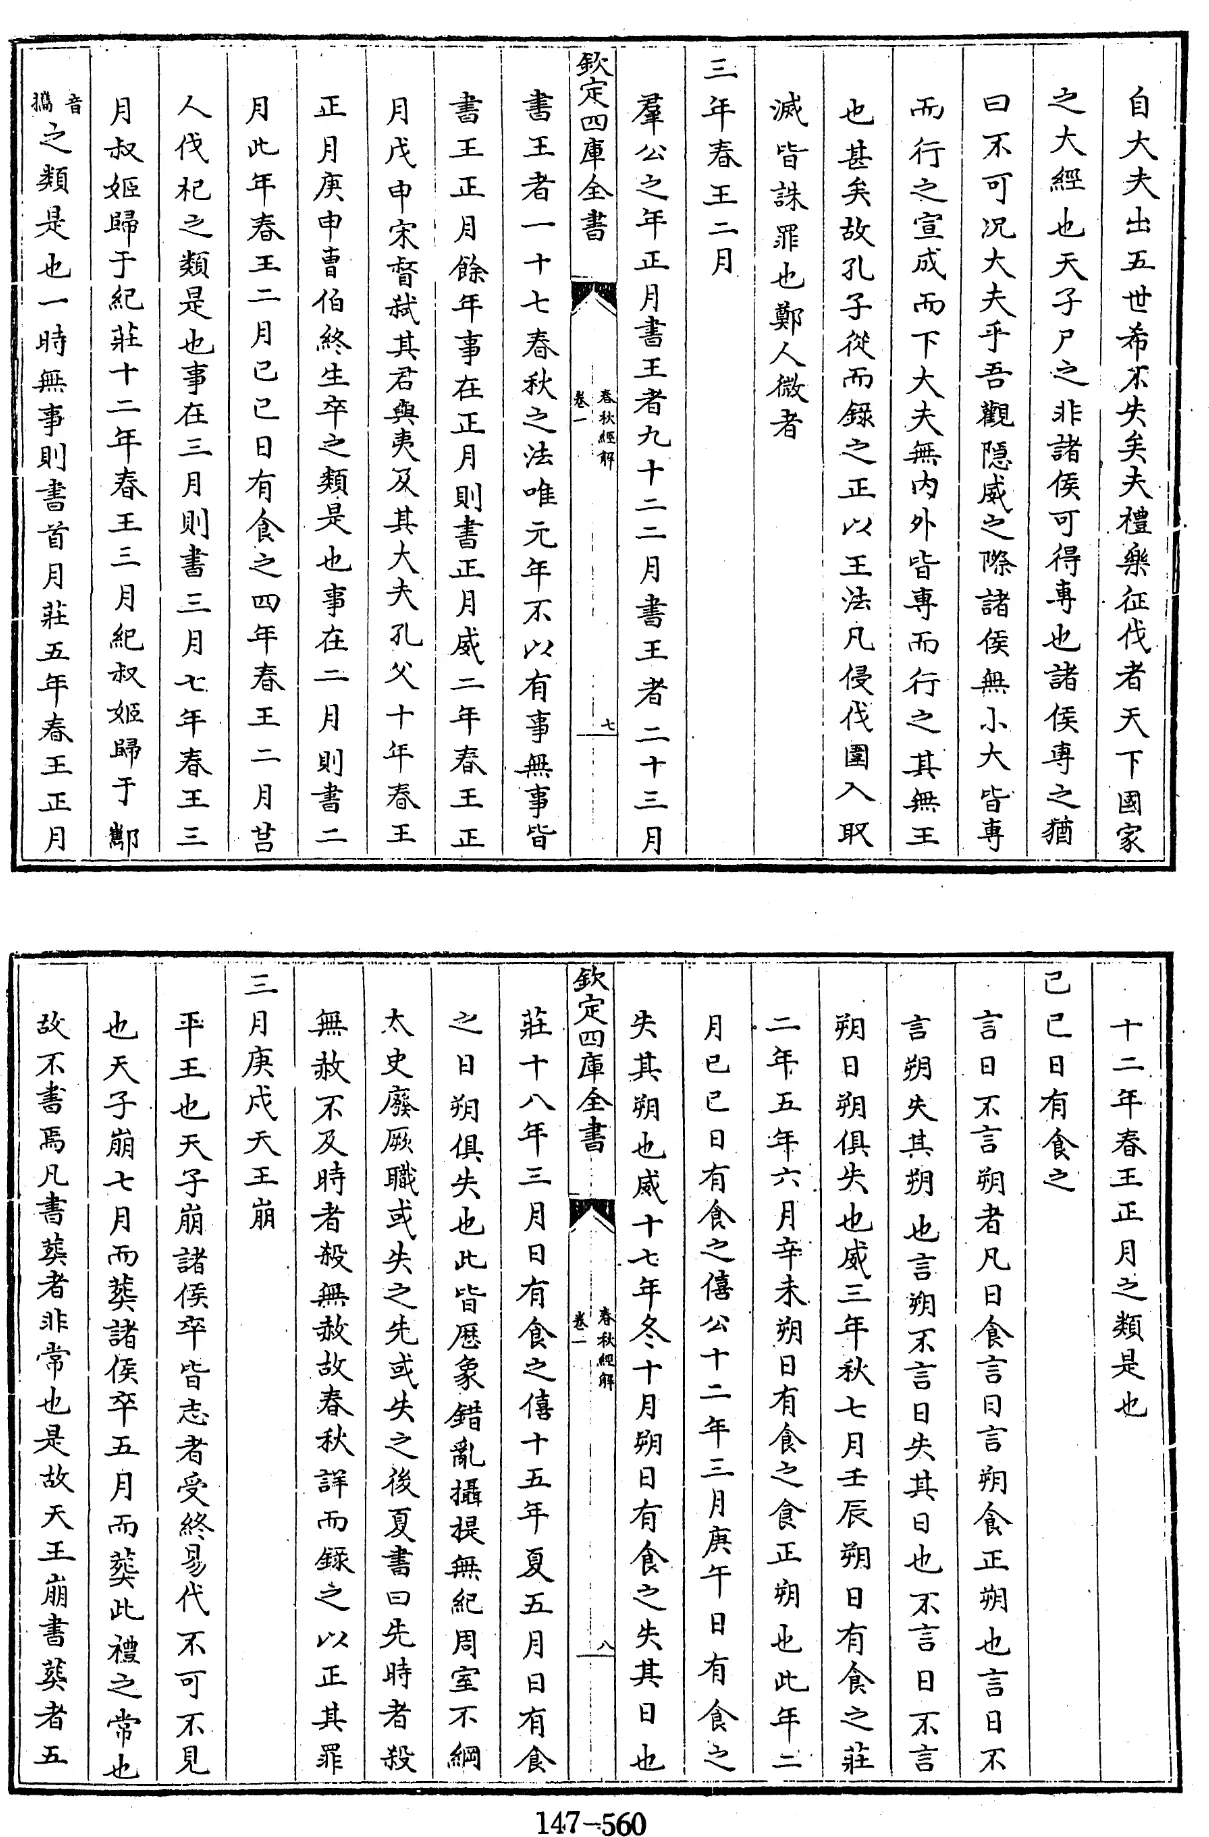 自大夫出五世希不失矣夫禮樂征伐者天下國家
之大經也天子尸之非諸侯可得專也諸侯專之猶
曰不可况大夫乎吾觀隱威之際諸侯無小大皆專
而行之宣成而下大夫無内外皆專而行之其無王
也甚矣故孔子從而録之正以王法凡侵伐圍入取
滅皆誅罪也鄭人微者
三年春王二月
羣公之年正月書王者九十二二月書王者二十三月
欽定四庫全書
春秋經解
卷一
七
書王者一十七春秋之法唯元年不以有事無事皆
書王正月餘年事在正月則書正月威二年春王正
月戊申宋督弑其君與夷及其大夫孔父十年春王
正月庚申曹伯終生卒之類是也事在二月則書二
月此年春王二月己巳日有食之四年春王二月莒
人伐杞之類是也事在三月則書三月七年春王三
月叔姬歸于紀莊十二年春王三月紀叔姬歸于酅
音
攜之類是也一時無事則書首月莊五年春王正月
十二年春王正月之類是也
己巳日有食之
言日不言朔者凡日食言日言朔食正朔也言日不
言朔失其朔也言朔不言日失其日也不言日不言
朔日朔俱失也威三年秋七月壬辰朔日有食之莊
二年五年六月辛未朔日有食之食正朔也此年二
月己巳日有食之僖公十二年三月庚午日有食之
失其朔也威十七年冬十月朔日有食之失其日也
欽定四庫全書
春秋經解
卷一
八
莊十八年三月日有食之僖十五年夏五月日有食
之日朔俱失也此皆厯象錯亂攝提無紀周室不綱
太史廢厥職或失之先或失之後夏書曰先時者殺
無赦不及時者殺無赦故春秋詳而録之以正其罪
三月庚戌天王崩
平王也天子崩諸侯卒皆志者受終易代不可不見
也天子崩七月而葬諸侯卒五月而葬此禮之常也
故不書焉凡書葬者非常也是故天王崩書葬者五
147-560